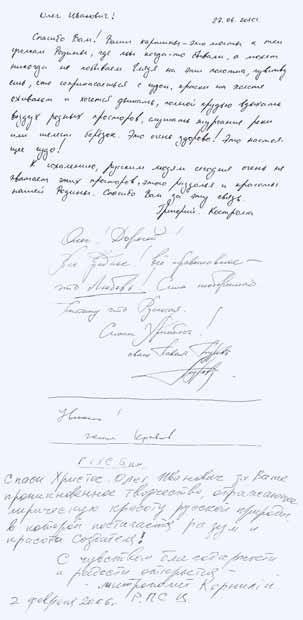 Олег Иванович! 27.06.2010г
Спасибо Вам! Ваши картины - это мосты к тем
уголкам Родины, где мы когда-то бывали, а может
никогда не побываем. Глядя на эти полотна, чувству
ешь, что соприкасаешься с ними, краски на холсте
оживают и хочется дышать, полной грудью вдыхать
воздух родных просторов, слушать журчание реки
или шелест берёзок. Это очень здорово! Это настоя
щее чудо!
К сожалению, русским людям сегодня очень не
хватает этих просторов, этого раздолья и красоты
нашей Родины. Спасибо Вам за эту связь.
Григорий. Кострома
Олег! Дорогой!
Всё
это Любовь! Сила
Потому что Русская.
Спаси Христос!
Г.І.Х.С.Б.нг.
Спаси Христос Олег Иванович за Ваше
проникновенное творчество, отражающее
лирическую красоту русской природы,
в которой постигается разум и
красота Создателя!
С чувством благодарности
и радости остаюсь -
- митрополит Корнилий
2 февраля 2006г. РПСЦ.